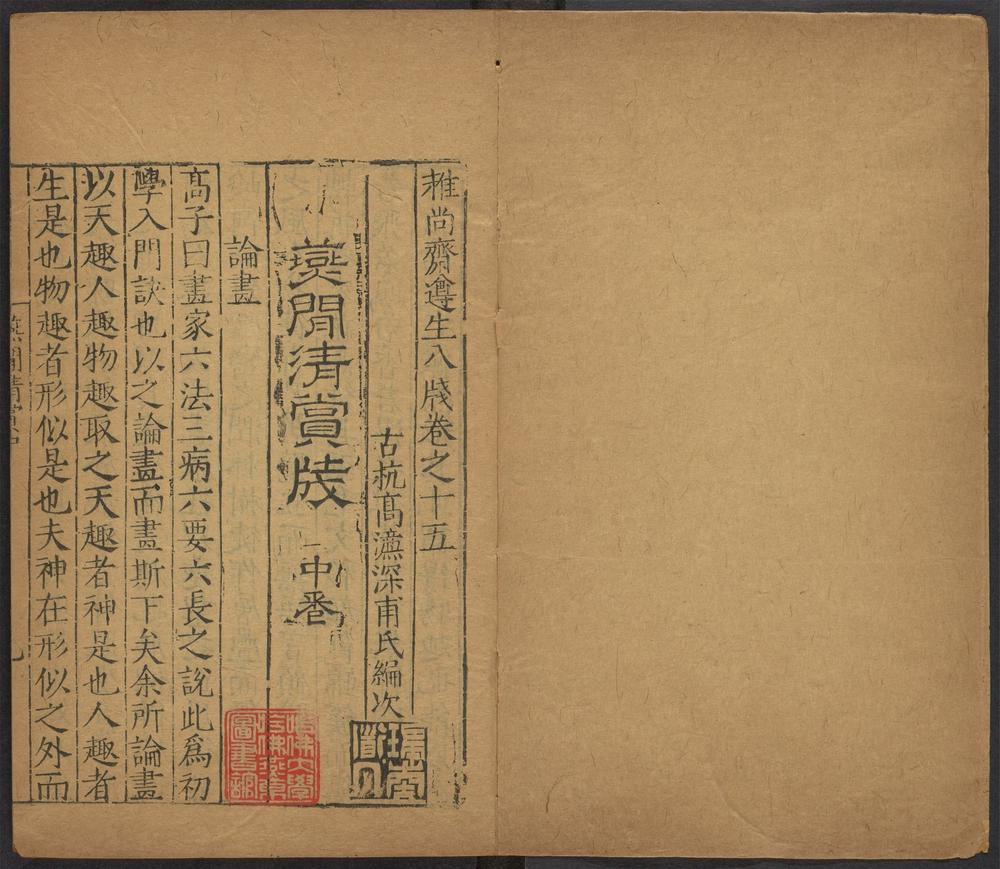 雅尚齋遵生八牋卷之十五
古杭高濂深甫氏編次
燕閒清賞牋
中卷
論畫
高子曰畫家六法三病六要六長之說此爲初
學入門訣也以之論畫而畫斯下矣余所論畫
以天趣人趣物趣取之天趣者神是也人趣者
生是也物趣者形似是也夫神在形似之外而
燕閒清賞
哈佛大學哈佛燕京圖書館